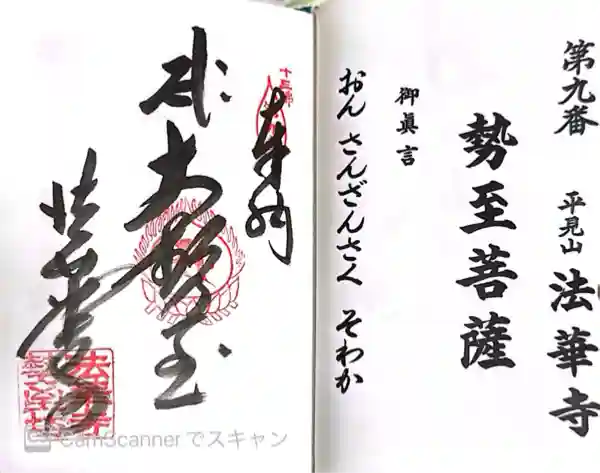 第九番 平見山 法華寺
勢至菩薩
御眞言
おん さんざんさく そわか
十三佛
奉納
大勢至
法華寺
CamScanner でスキャン